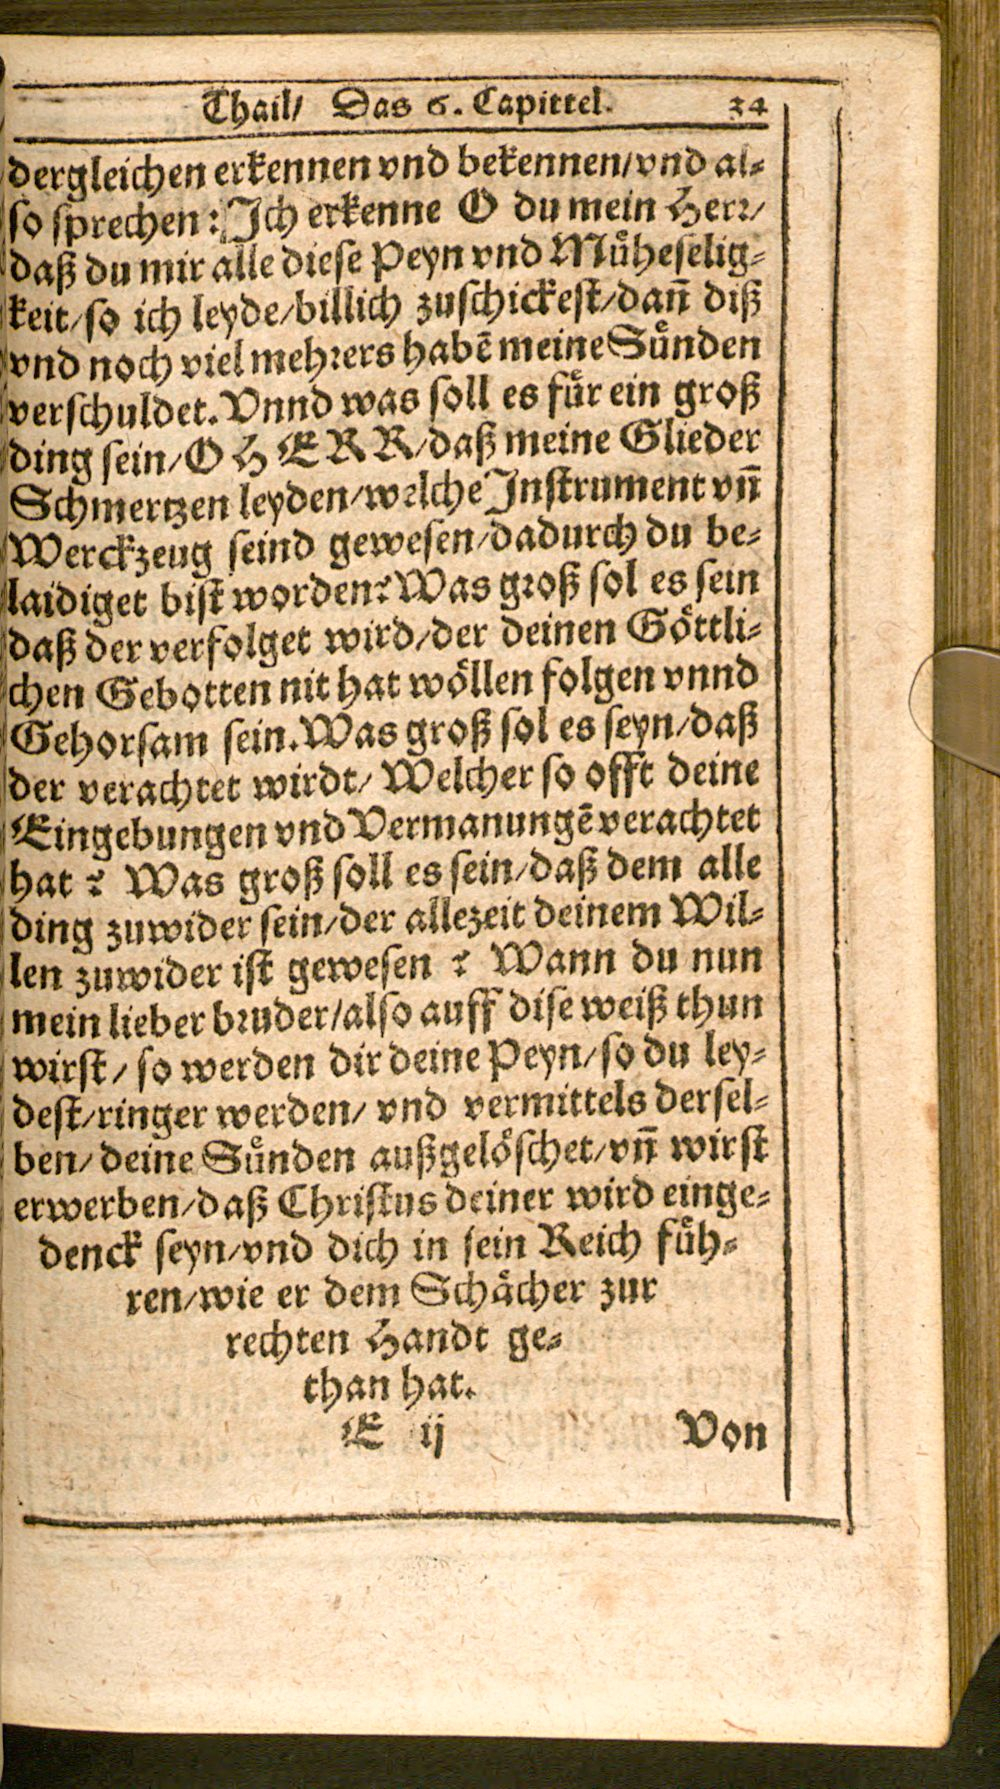 Thail/ Das 6. Capittel. 34
dergleichen erkennen vnd bekennen/vnd al⸗
so sprechen: Ich erkenne O du mein Herr/
daß du mir alle diese Peyn vnd Müheselig⸗
keit/so ich leyde/billich zuschickest/dañ diß
vnd noch viel mehrers habẽ meine Sünden
verschuldet. Vnnd was soll es für ein groß
ding sein/O HERR/daß meine Glieder
Schmertzen leyden/welche Instrument vñ
Werckzeug seind gewesen/dadurch du be⸗
laidiget bist worden? Was groß sol es sein
daß der verfolget wird/der deinen Göttli⸗
chen Gebotten nit hat wöllen folgen vnnd
Gehorsam sein. Was groß sol es seyn/daß
der verachtet wirdt/ Welcher so offt deine
Eingebungen vnd Vermanungẽ verachtet
hat ? Was groß soll es sein/daß dem alle
ding zuwider sein/der allezeit deinem Wil⸗
len zuwider ist gewesen ? Wann du nun
mein lieber bruder/also auff dise weiß thun
wirst/ so werden dir deine Peyn/so du ley⸗
dest/ringer werden/ vnd vermittels dersel⸗
ben/deine Sünden außgelöschet/vñ wirst
erwerben/daß Christus deiner wird einge⸗
denck seyn/vnd dich in sein Reich füh⸗
ren/wie er dem Schächer zur
rechten Handt ge⸗
than hat.
E ij Von